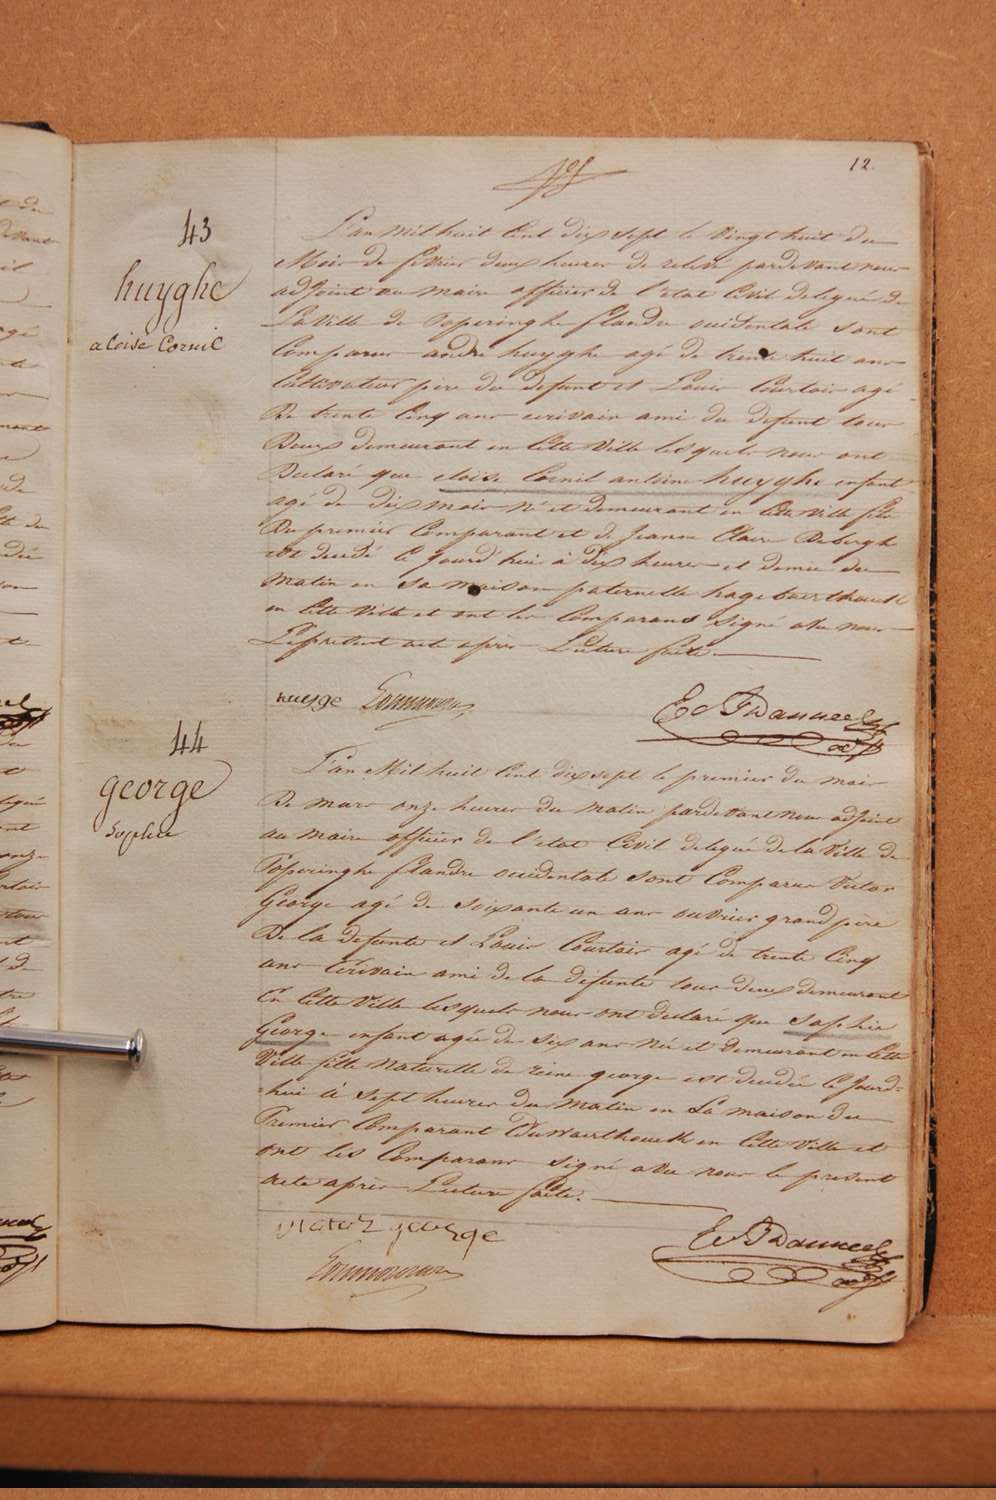 12.
43
huyghe
aloise Cornil
L'an mil huit Cent dix sept le vingt huit du
Mois de fevrier deux heures de relevé pardevant nous
adjoint au maire officier de l'etat Civil delegué de
La Ville de Poperinghe flandre occidentale sont
Comparus andré huyghe agé de trente huit ans
Cultivateur père du defunt et Louis Courtois agé
De trente Cinq ans ecrivain ami du defunt tous
Deux demeurant en Cette Ville lesquels nous ont
Declaré que eloise Cornil antoine huyghe enfant
agé de dix mois né et demeurant en Cette Ville fils
Du premier Comparant et de Jeanne Claire Debergh
est decedé Ce Jourd'hui à Dix heures et demie du
Matin en Sa maison paternelle
en Cette Ville et ont les Comparans Signé avec nous
Le present acte après Lecture faite.
44
george
Sophie
L'an Mil huit Cent dix sept le premier du mois
De mars onze heures du matin pardevant nous adjoint
au maire officier de l'etat Civil delegué de la Ville de
Poperinghe flandre occidentale sont Comparus Victor
George agé de soixante un ans ouvrier grand père
De la defunte et Louis Courtois agé de trente Cinq
ans Ecrivain ami de la defunte tous deux demeurant
En Cette Ville lesquels nous ont declaré que Sophie
George enfant agée de Six ans Née et demeurant en Cette
Ville fille Naturelle de reine george est decedée Ce Jourd=
=hui à Sept heures du Matin en La maison du
Premier Comparant en Cette Ville et
ont les Comparans signé avec nous le present
acte après Lecture faite.
victor george